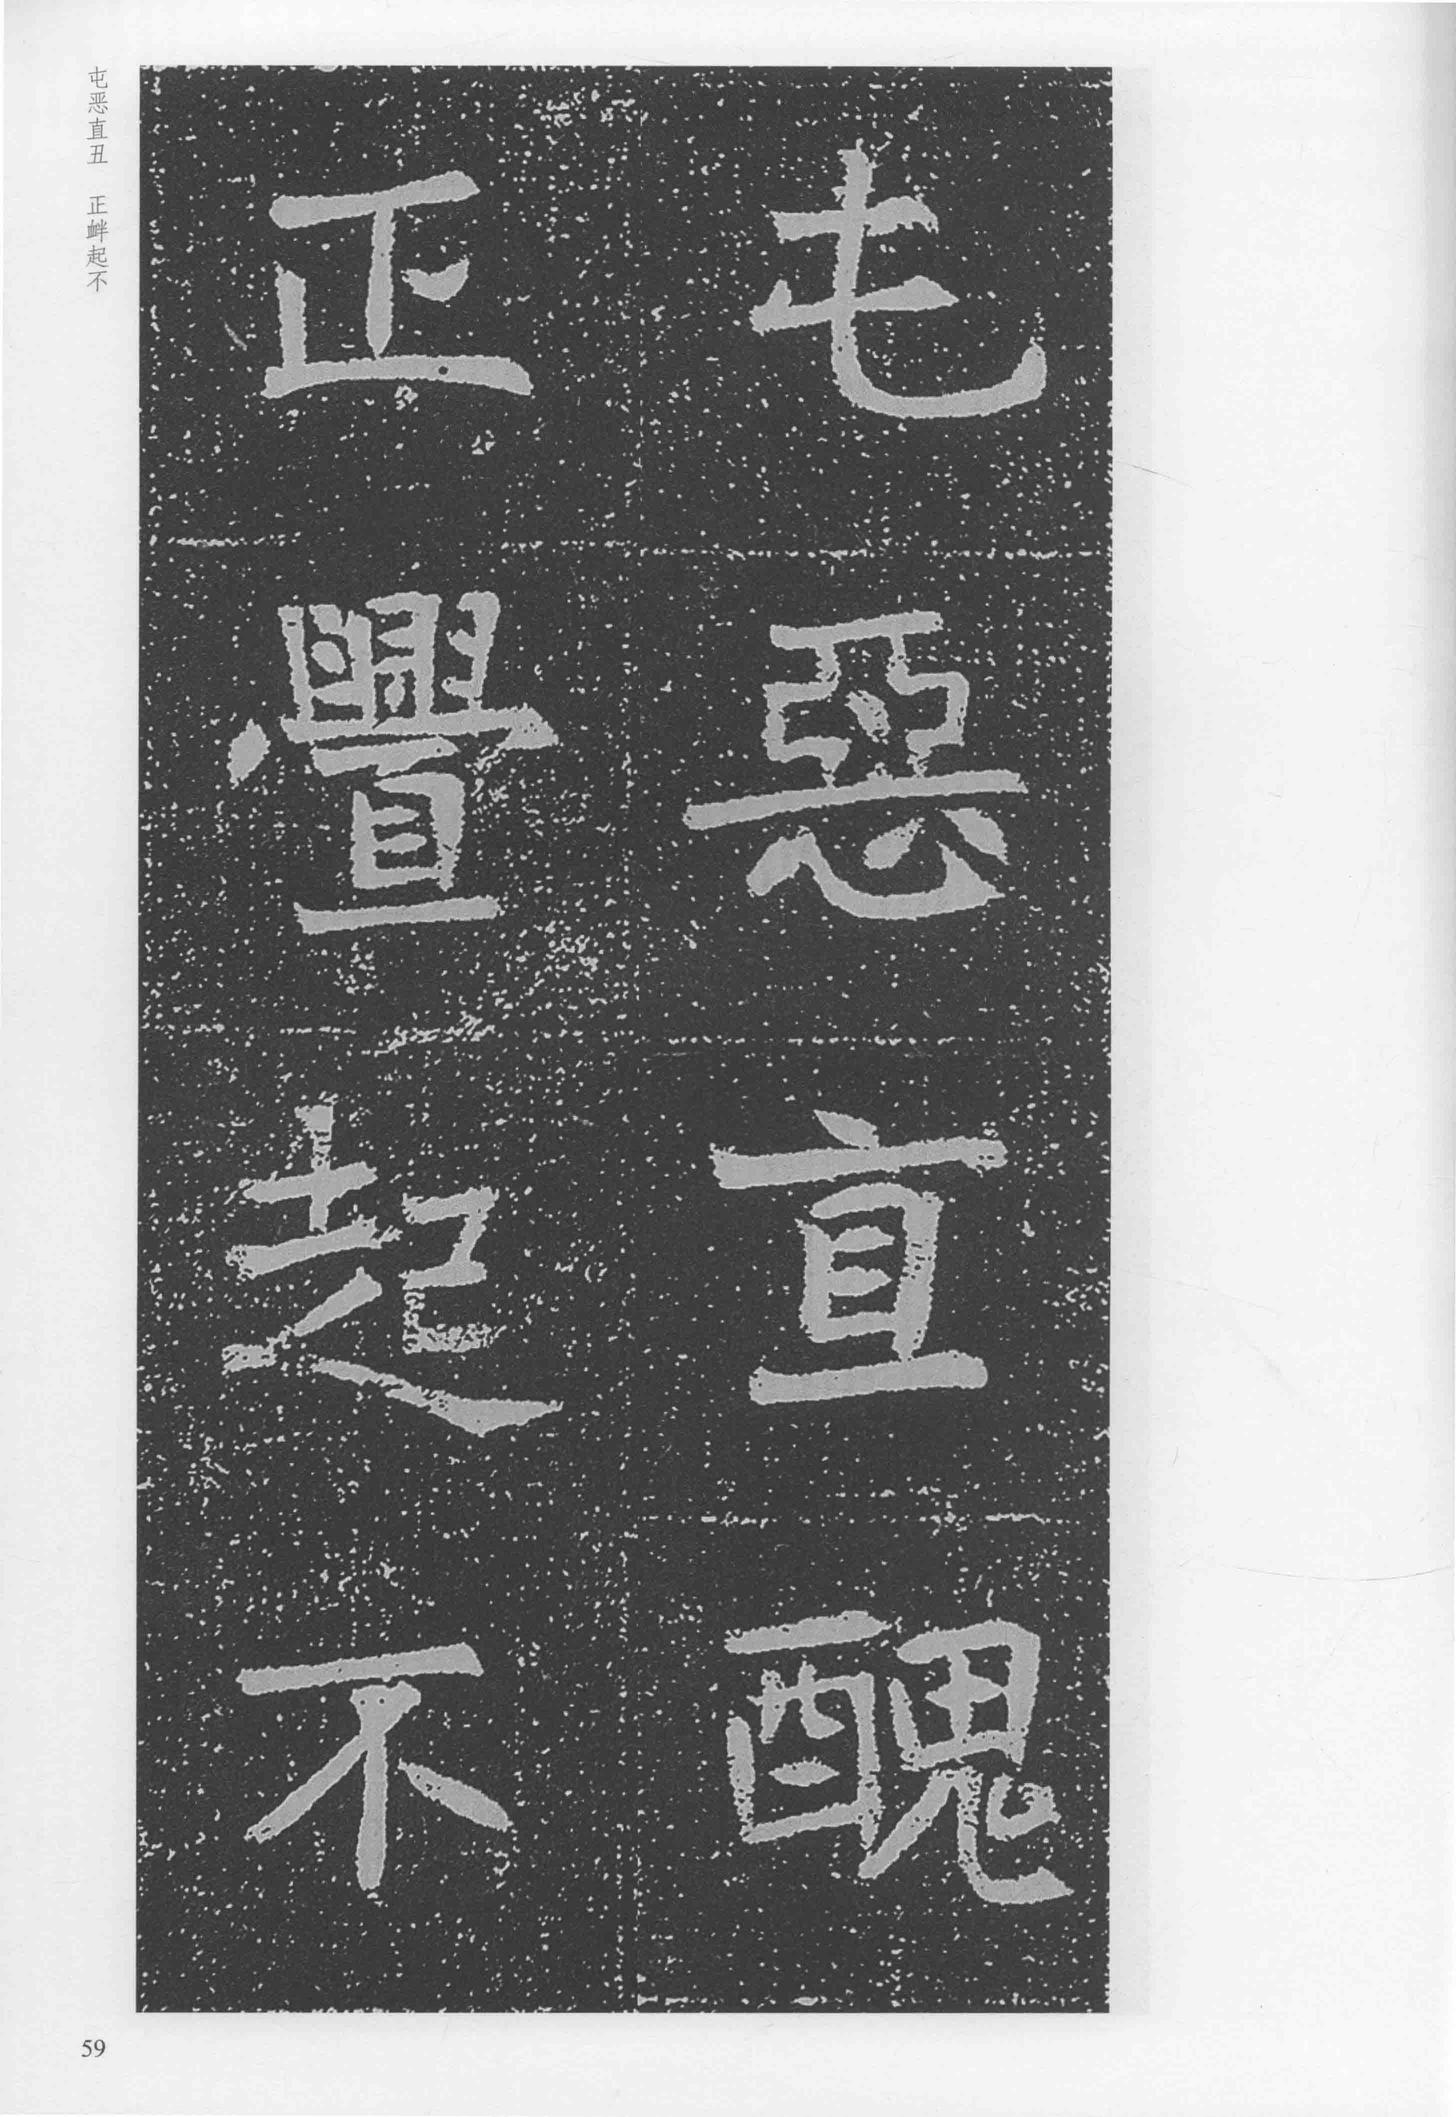 屯惡直醜
正舋起不
屯恶直丑 正衅起不
59